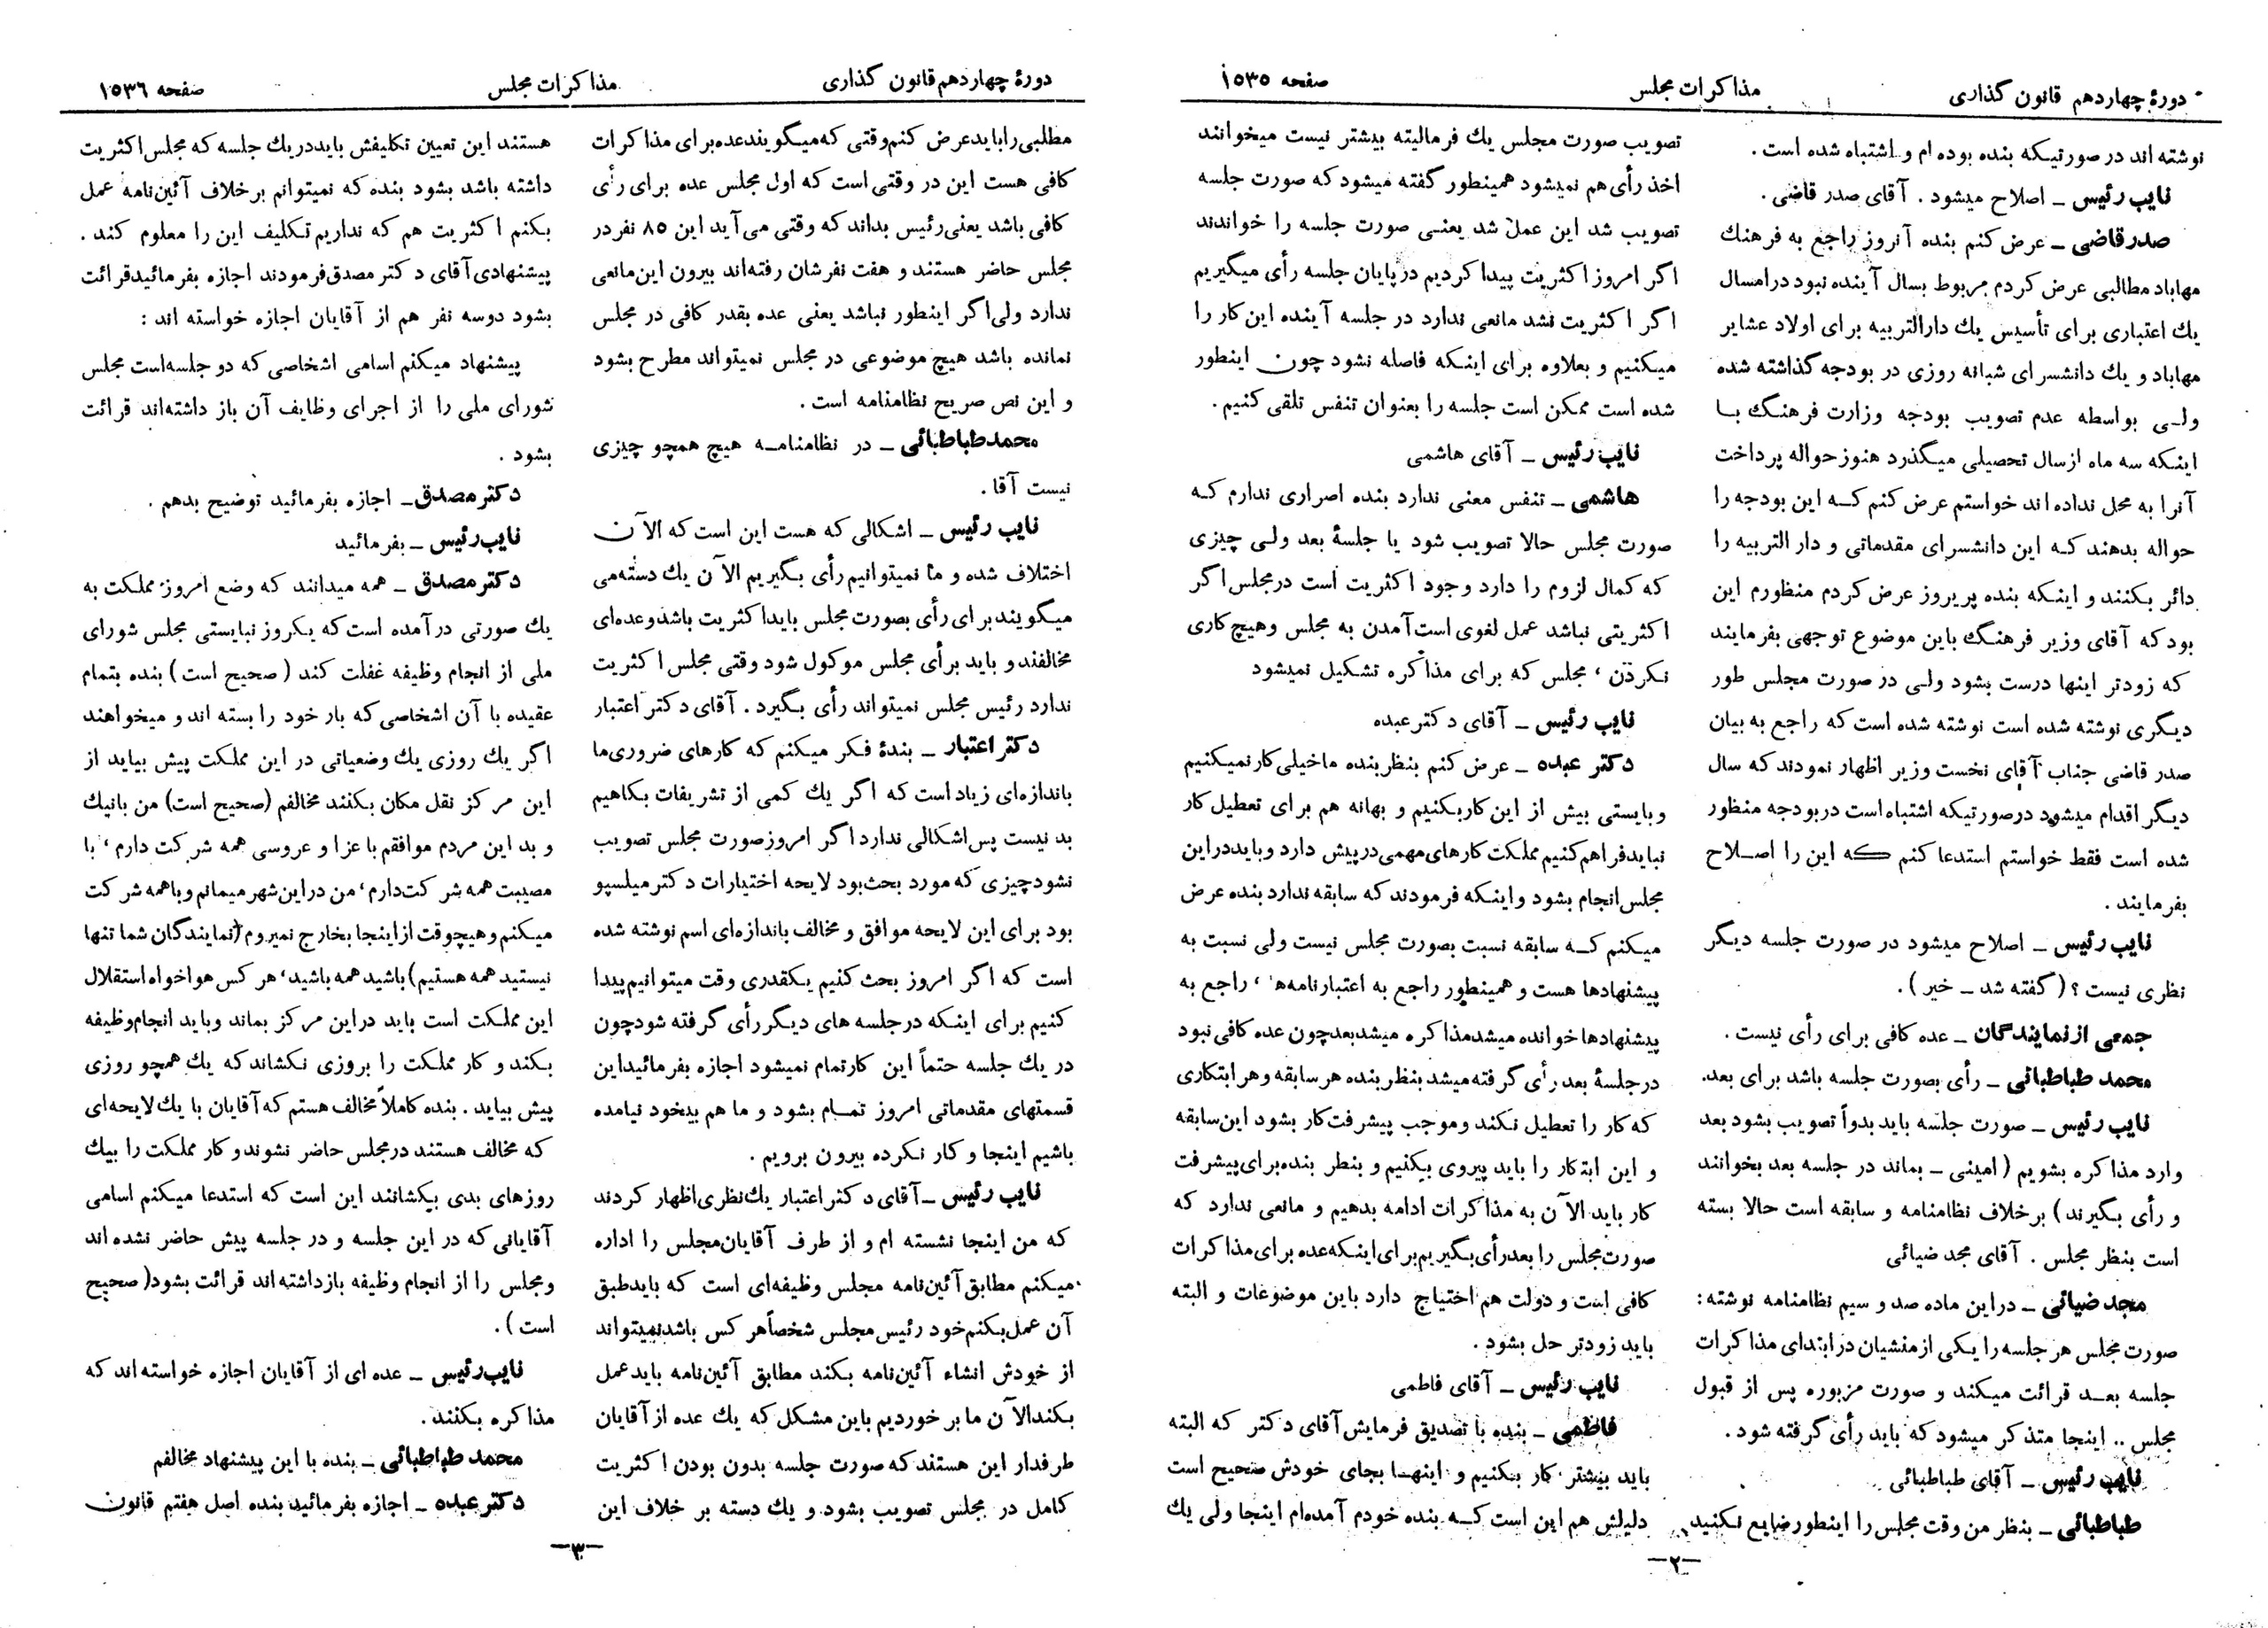 دورهٔ چهاردهم قانون گذاری
مذاکرات مجلس
صفحه ۱۵۳۵
نوشته اند در صورتیکه بنده بوده ام و اشتباه شده است .
نایب رئیس ــ اصلاح میشود . آقای صدر قاضی .
صدرقاضی ــ عرض کنم بنده آنروز راجع به فرهنك
مهاباد مطالبی عرض کردم مربوط بسال آینده نبود در امسال
یك اعتباری برای تأسیس یك دارالتربیه برای اولاد عشایر
مهاباد و یك دانشسرای شبانه روزی در بودجه گذاشته شده
ولی بواسطه عدم تصویب بودجه وزارت فرهنگ با
اینکه سه ماه از سال تحصیلی میگذرد هنوز حواله پرداخت
آنرا به محل نداده اند خواستم عرض کنم که این بودجه را
حواله بدهند که این دانشسرای مقدماتی و دار التربیه را
دائر بکنند و اینکه بنده پریروز عرض کردم منظورم این
بود که آقای وزیر فرهنگ باین موضوع توجهی بفرمایند
که زودتر اینها درست بشود ولی در صورت مجلس طور
دیگری نوشته شده است نوشته شده است که راجع به بیان
صدر قاضی جناب آقای نخست وزیر اظهار نمودند که سال
دیگر اقدام میشود درصورتیکه اشتباه است در بودجه منظور
شده است فقط خواستم استدعا کنم که این را اصلاح
بفرمایند .
نایب رئیس ــ اصلاح میشود در صورت جلسه دیگر
نظری نیست ؟ ( گفته شد ــ خیر ) .
جمعی از نمایندگان ــ عده کافی برای رأی نیست .
محمد طباطبائی ــ رأی بصورت جلسه باشد برای بعد.
نایب رئیس ــ صورت جلسه باید بدواً تصویب بشود بعد
وارد مذاکره بشویم ( امینی ــ بماند در جلسه بعد بخوانند
و رأی بگیرند ) بر خلاف نظامنامه و سابقه است حالا بسته
است بنظر مجلس . آقای مجد ضیائی
مجد ضیائی ــ در این ماده صد و سیم نظامنامه نوشته :
صورت مجلس هر جلسه را یکی از منشیان در ابتدای مذاکرات
جلسه بعد قرائت میکند و صورت مزبوره پس از قبول
مجلس .. اینجا متذکر میشود که باید رأی گرفته شود .
نایب رئیس ــ آقای طباطبائی
طباطبائی ــ بنظر من وقت مجلس را اینطور ضایع نکنید
تصویب صورت مجلس یك فرمالیته بیشتر نیست میخوانند
اخذ رأی هم نمیشود همینطور گفته میشود که صورت جلسه
تصویب شد این عمل شد یعنی صورت جلسه را خواندند
اگر امروز اکثریت پیدا کردیم در پایان جلسه رأی میگیریم
اگر اکثریت نشد مانعی ندارد در جلسه آینده این کار را
میکنیم و بعلاوه برای اینکه فاصله نشود چون اینطور
شده است ممکن است جلسه را بعنوان تنفس تلقی کنیم .
نایب رئیس ــ آقای هاشمی
هاشمی ــ تنفس معنی ندارد بنده اصراری ندارم که
صورت مجلس حالا تصویب شود یا جلسهٔ بعد ولی چیزی
که کمال لزوم را دارد وجود اکثریت است در مجلس اگر
اکثریتی نباشد عمل لغوی است آمدن به مجلس و هیچ کاری
نکردن ، مجلس که برای مذاکره تشکیل نمیشود
نایب رئیس ــ آقای دکتر عبده
دکتر عبده ــ عرض کنم بنظر بنده ما خیلی کار نمیکنیم
و بایستی بیش از این کار بکنیم و بهانه هم برای تعطیل کار
نباید فراهم کنیم مملکت کارهای مهمی در پیش دارد و باید در این
مجلس انجام بشود و اینکه فرمودند که سابقه ندارد بنده عرض
میکنم که سابقه نسبت بصورت مجلس نیست ولی نسبت به
پیشنهادها هست و همینطور راجع به اعتبارنامه ها ، راجع به
پیشنهادها خوانده میشد مذاکره میشد بعد چون عده کافی نبود
در جلسهٔ بعد رأی گرفته میشد بنظر بنده هر سابقه و هر ابتکاری
که کار را تعطیل نکند و موجب پیشرفت کار بشود این سابقه
و این ابتکار را باید پیروی بکنیم و بنظر بنده برای پیشرفت
کار باید الآن به مذاکرات ادامه بدهیم و مانعی ندارد که
صورت مجلس را بعد رأی بگیریم برای اینکه عده برای مذاکرات
کافی است و دولت هم احتیاج دارد باین موضوعات و البته
باید زودتر حل بشود .
نایب رئیس ــ آقای فاطمی
فاطمی ــ بنده با تصدیق فرمایش آقای دکتر که البته
باید بیشتر کار بکنیم و اینها بجای خودش صحیح است
دلیلش هم این است که بنده خودم آمده ام اینجا ولی یك
ــ۲ــ
دورهٔ چهاردهم قانون گذاری
مذاکرات مجلس
صفحه ۱۵۳۶
مطلبی را باید عرض کنم وقتی که میگویند عده برای مذاکرات
کافی هست این در وقتی است که اول مجلس عده برای رأی
کافی باشد یعنی رئیس بداند که وقتی می آید این ۸۵ نفر در
مجلس حاضر هستند و هفت نفرشان رفته اند بیرون این مانعی
ندارد ولی اگر اینطور نباشد یعنی عده بقدر کافی در مجلس
نمانده باشد هیچ موضوعی در مجلس نمیتواند مطرح بشود
و این نص صریح نظامنامه است .
محمد طباطبائی ــ در نظامنامه هیچ همچو چیزی
نیست آقا .
نایب رئیس ــ اشکالی که هست این است که الآن
اختلاف شده و ما نمیتوانیم رأی بگیریم الآن یك دسته می
میگویند برای رأی بصورت مجلس باید اکثریت باشد و عده ای
مخالفند و باید برأی مجلس موکول شود وقتی مجلس اکثریت
ندارد رئیس مجلس نمیتواند رأی بگیرد . آقای دکتر اعتبار
دکتر اعتبار ــ بندهٔ فکر میکنم که کارهای ضروری ما
باندازه ای زیاد است که اگر یك کمی از تشریفات بکاهیم
بد نیست پس اشکالی ندارد اگر امروز صورت مجلس تصویب
نشود چیزی که مورد بحث بود لایحه اختیارات دکتر میلسپو
بود برای این لایحه موافق و مخالف باندازه ای اسم نوشته شده
است که اگر امروز بحث کنیم یکقدری وقت میتوانیم پیدا
کنیم برای اینکه در جلسه های دیگر رأی گرفته شود چون
در یك جلسه حتماً این کار تمام نمیشود اجازه بفرمائید این
قسمتهای مقدماتی امروز تمام بشود و ما هم بیخود نیامده
باشیم اینجا و کار نکرده بیرون برویم .
نایب رئیس ــ آقای دکتر اعتبار یك نظری اظهار کردند
که من اینجا نشسته ام و از طرف آقایان مجلس را اداره
میکنم مطابق آئین نامه مجلس وظیفه ای است که باید طبق
آن عمل بکنم خود رئیس مجلس شخصاً هر کس باشد نمیتواند
از خودش انشاء آئین نامه بکند مطابق آئین نامه باید عمل
بکند الآن ما بر خوردیم باین مشکل که یك عده از آقایان
طرفدار این هستند که صورت جلسه بدون بودن اکثریت
کامل در مجلس تصویب بشود و یك دسته بر خلاف این
هستند این تعیین تکلیفش باید در یك جلسه که مجلس اکثریت
داشته باشد بشود بنده که نمیتوانم بر خلاف آئین نامه عمل
بکنم اکثریت هم که نداریم تکلیف این را معلوم کند .
پیشنهادی آقای دکتر مصدق فرمودند اجازه بفرمائید قرائت
بشود دوسه نفر هم از آقایان اجازه خواسته اند :
پیشنهاد میکنم اسامی اشخاصی که دو جلسه است مجلس
شورای ملی را از اجرای وظایف آن باز داشته اند قرائت
بشود .
دکتر مصدق ــ اجازه بفرمائید توضیح بدهم .
نایب رئیس ــ بفرمائید
دکتر مصدق ــ همه میدانند که وضع امروز مملکت به
یك صورتی درآمده است که یکروز نبایستی مجلس شورای
ملی از انجام وظیفه غفلت کند ( صحیح است ) بنده بتمام
عقیده با آن اشخاصی که بار خود را بسته اند و میخواهند
اگر یك روزی یك وضعیاتی در این مملکت پیش بیاید از
این مرکز نقل مکان بکنند مخالفم (صحیح است) من بانیك
و بد این مردم موافقم با عزا و عروسی همه شرکت دارم ، با
مصیبت همه شرکت دارم ، من در این شهر میمانم و با همه شرکت
میکنم و هیچوقت از اینجا بخارج نمیروم (نمایندگان شما تنها
نیستید همه هستیم) باشید همه باشید ، هر کس هواخواه استقلال
این مملکت است باید در این مرکز بماند و باید انجام وظیفه
بکند و کار مملکت را بروزی نکشاند که یك همچو روزی
پیش بیاید . بنده کاملاً مخالف هستم که آقایان با یك لایحه ای
که مخالف هستند در مجلس حاضر نشوند و کار مملکت را بیك
روزهای بدی بکشانند این است که استدعا میکنم اسامی
آقایانی که در این جلسه و در جلسه پیش حاضر نشده اند
و مجلس را از انجام وظیفه بازداشته اند قرائت بشود ( صحیح
است ) .
نایب رئیس ــ عده ای از آقایان اجازه خواسته اند که
مذاکره بکنند .
محمد طباطبائی ــ بنده با این پیشنهاد مخالفم
دکتر عبده ــ اجازه بفرمائید بنده اصل هفتم قانون
ــ۳ــ